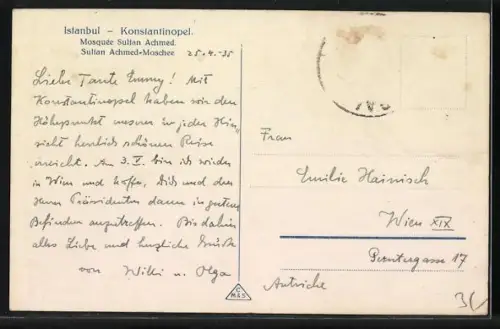 Istanbul – Konstantinopel.
Mosquée Sultan Achmed.
Sultan Achmed-Moschee.
25.4.35
Liebe Tante Emmy! Mit
Konstantinopel haben wir den
Höhepunkt unserer in jeder Hin-
sicht herrlich schönen Reise
erreicht. Am 3.V. bin ich wieder
in Wien und hoffe, Dich und den
Herrn Präsidenten dann in gutem
Befinden anzutreffen. Bis dahin
alles Liebe und herzliche Grüße
von Willi u. Olga
Frau
Emilie Hainisch
Wien XIX
17
Autriche
C
M&S
3L